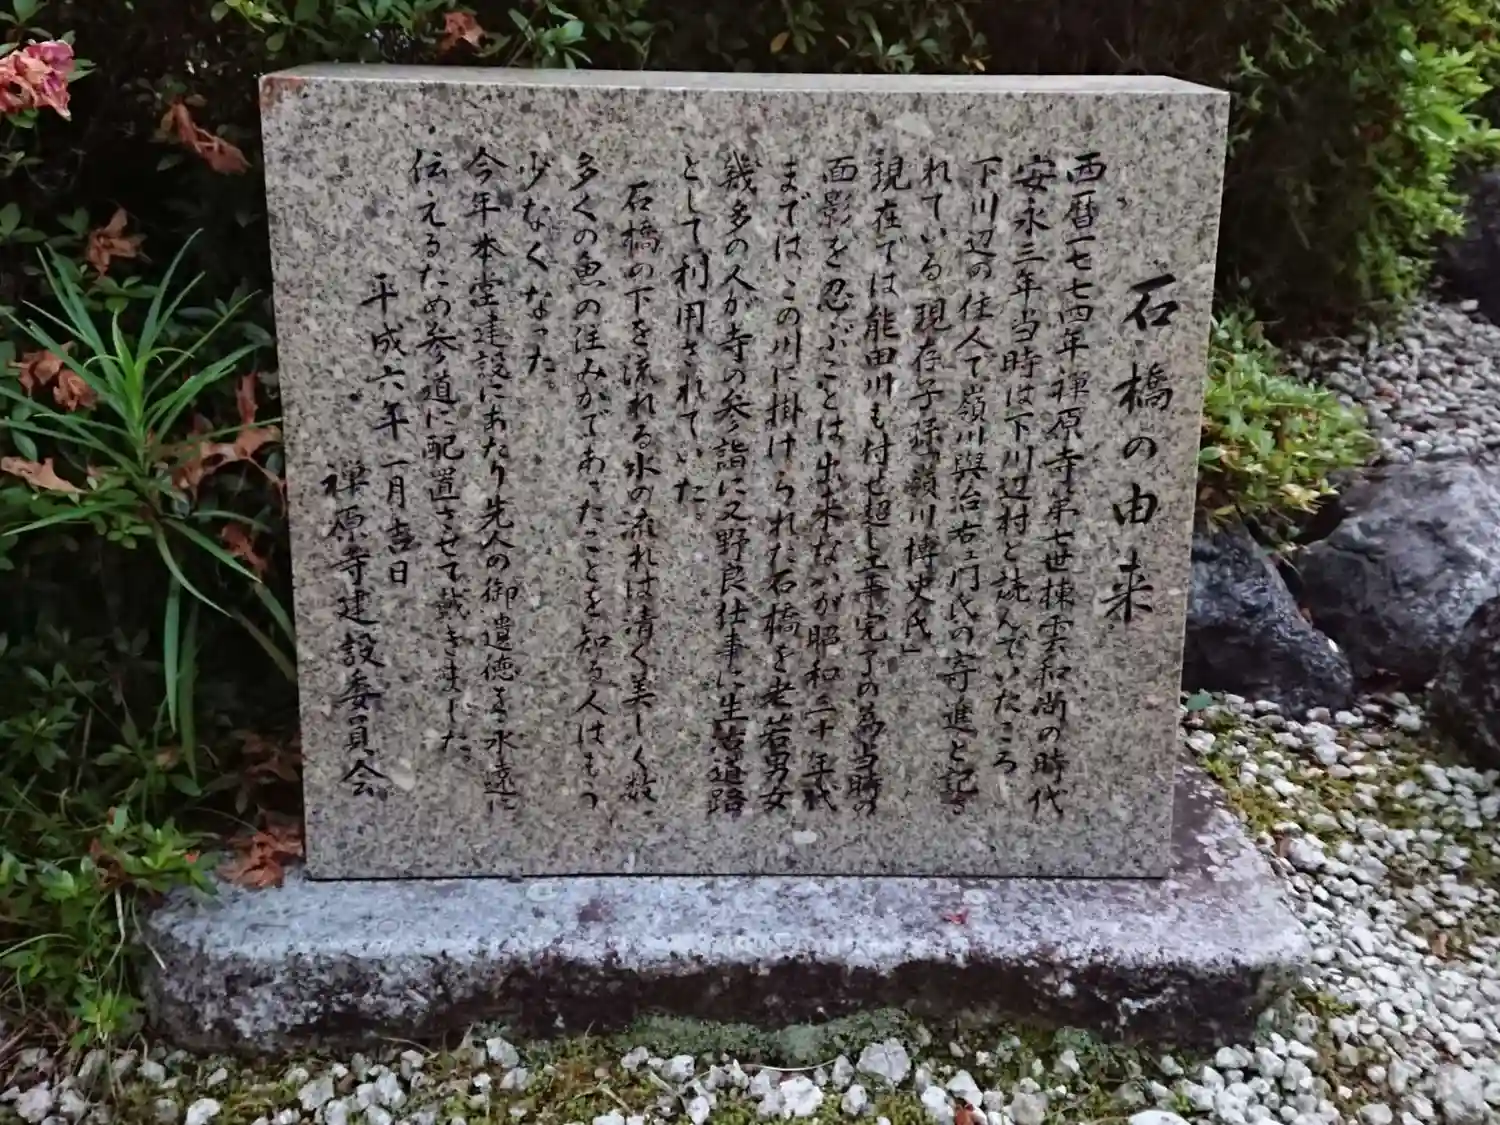 石橋の由来
西暦一七七四年禅原寺第七世棟雲和尚の時代
安永三年当時は下川辺村と読んでいたころ
下川辺の住人で嶺川與治右ェ門氏の寄進と記さ
れている現存子孫「嶺川博史氏」
現在では能田川も付せ越し工事完了の為当時の
面影を忍ぶことは出来ないが昭和三十年代
まではこの川に掛けられた石橋を老若男女
幾多の人が寺の参詣に又野良仕事に生活道路
として利用されていた。
石橋の下を流れる水の流れは清く美しく数
多くの魚の住みかであったことを知る人はもう
少なくなった。
今年本堂建設にあたり先人の御遺徳を永遠に
伝えるため参道に配置させて戴きました。
平成六年一月吉日
禅原寺建設委員会